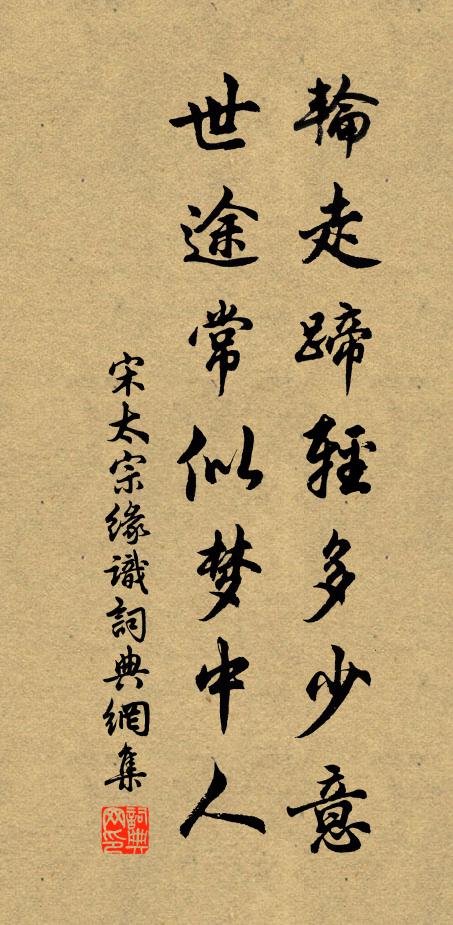 輪走蹄輕多少意
世途常似梦中人
宋太宗緣識詞典網集
詞典網印